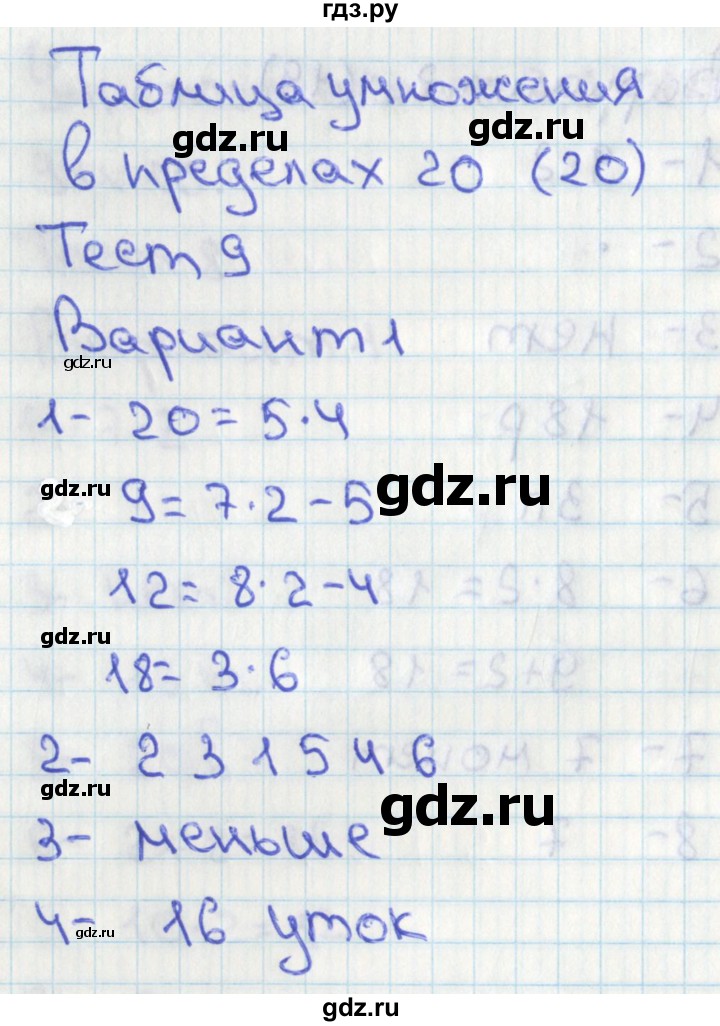 гдз.ру
Таблица умножения
gdz.ru gdz.ru
в пределах 20 (20)
Тест 9
Вариант 1
gdz.ru
1- 20 = 5·4
gdz.ru gdz.ru
9 = 7·2-5
12 = 8·2-4
gdz.ru
18 = 3·6
2- 2 3 1 5 4 6
gdz.ru gdz.ru
3- меньше
4- 16 уток
gdz.ru
gdz.ru